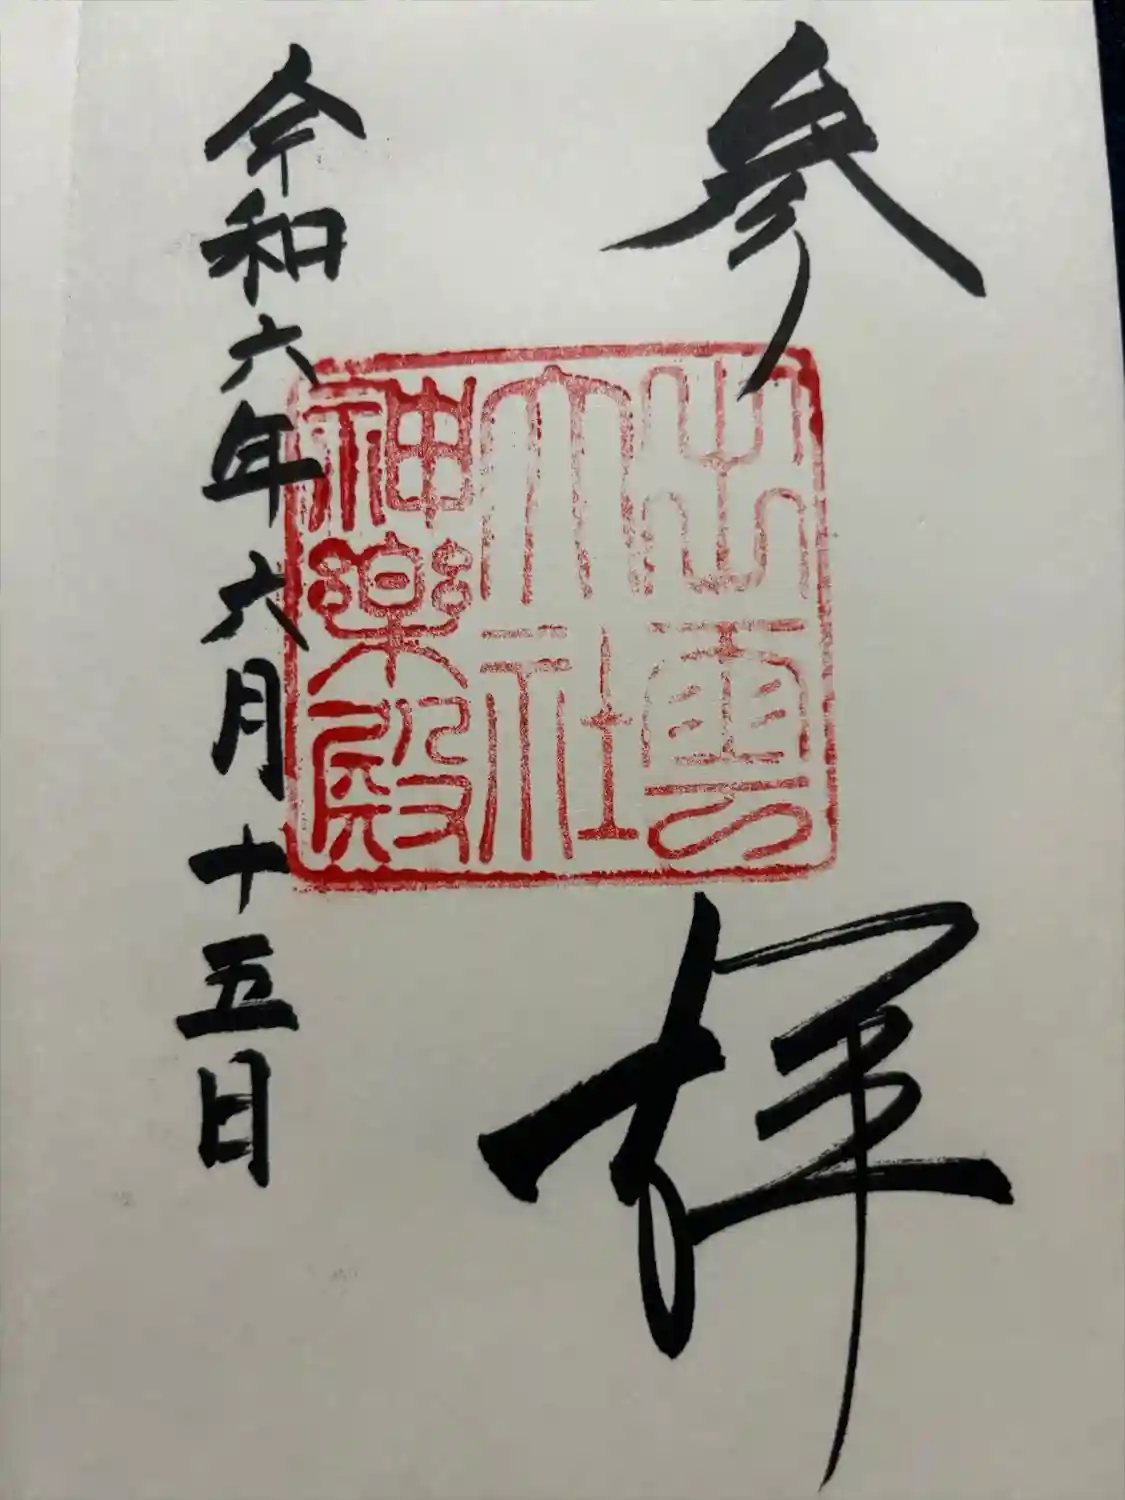 参拝
出雲
大社
神楽殿
令和六年六月十五日